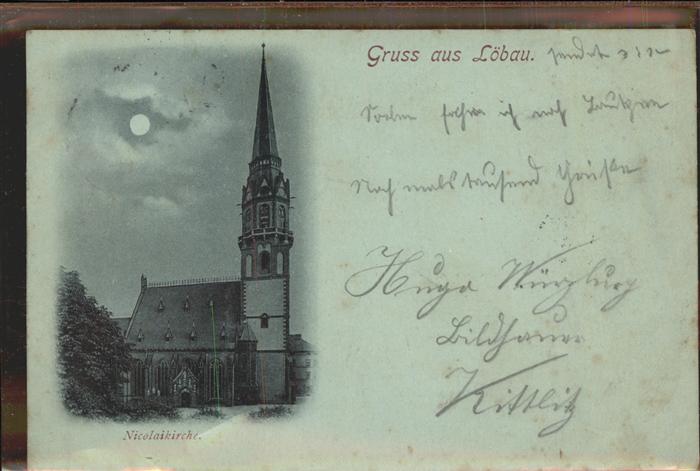 Gruss aus Löbau. sendet
Soeben fahre ich nach Bautzen
Nochmals tausend Grüße
Hugo Würzburg
Bildhauer
Kittlitz
Nicolaikirche.